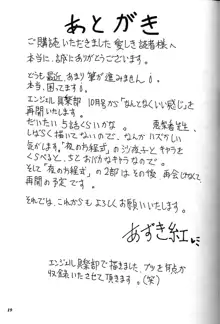 あとがき
ご購読いただきました愛しき読者様へ
本当に、誠にありがとうございます。
どうも最近、あまり筆が進みません。
本当、困ってます。
エンジェル倶楽部 10月号から「なんとなくいい感じ」を
再開いたします。
だいたい5話くらいかな。
しばらく描いてないので、なんかハズかしい
気がします。
くらべると、ちとおバカなキャラなので。
そして「夜のお程式」の2部はその後 再会しなくて
再開の予定です。
それでは、これからも よろしくお願いいたします。
あずき紅
エンジェル倶楽部で描きました、
収録いたさせて頂きます。(笑)